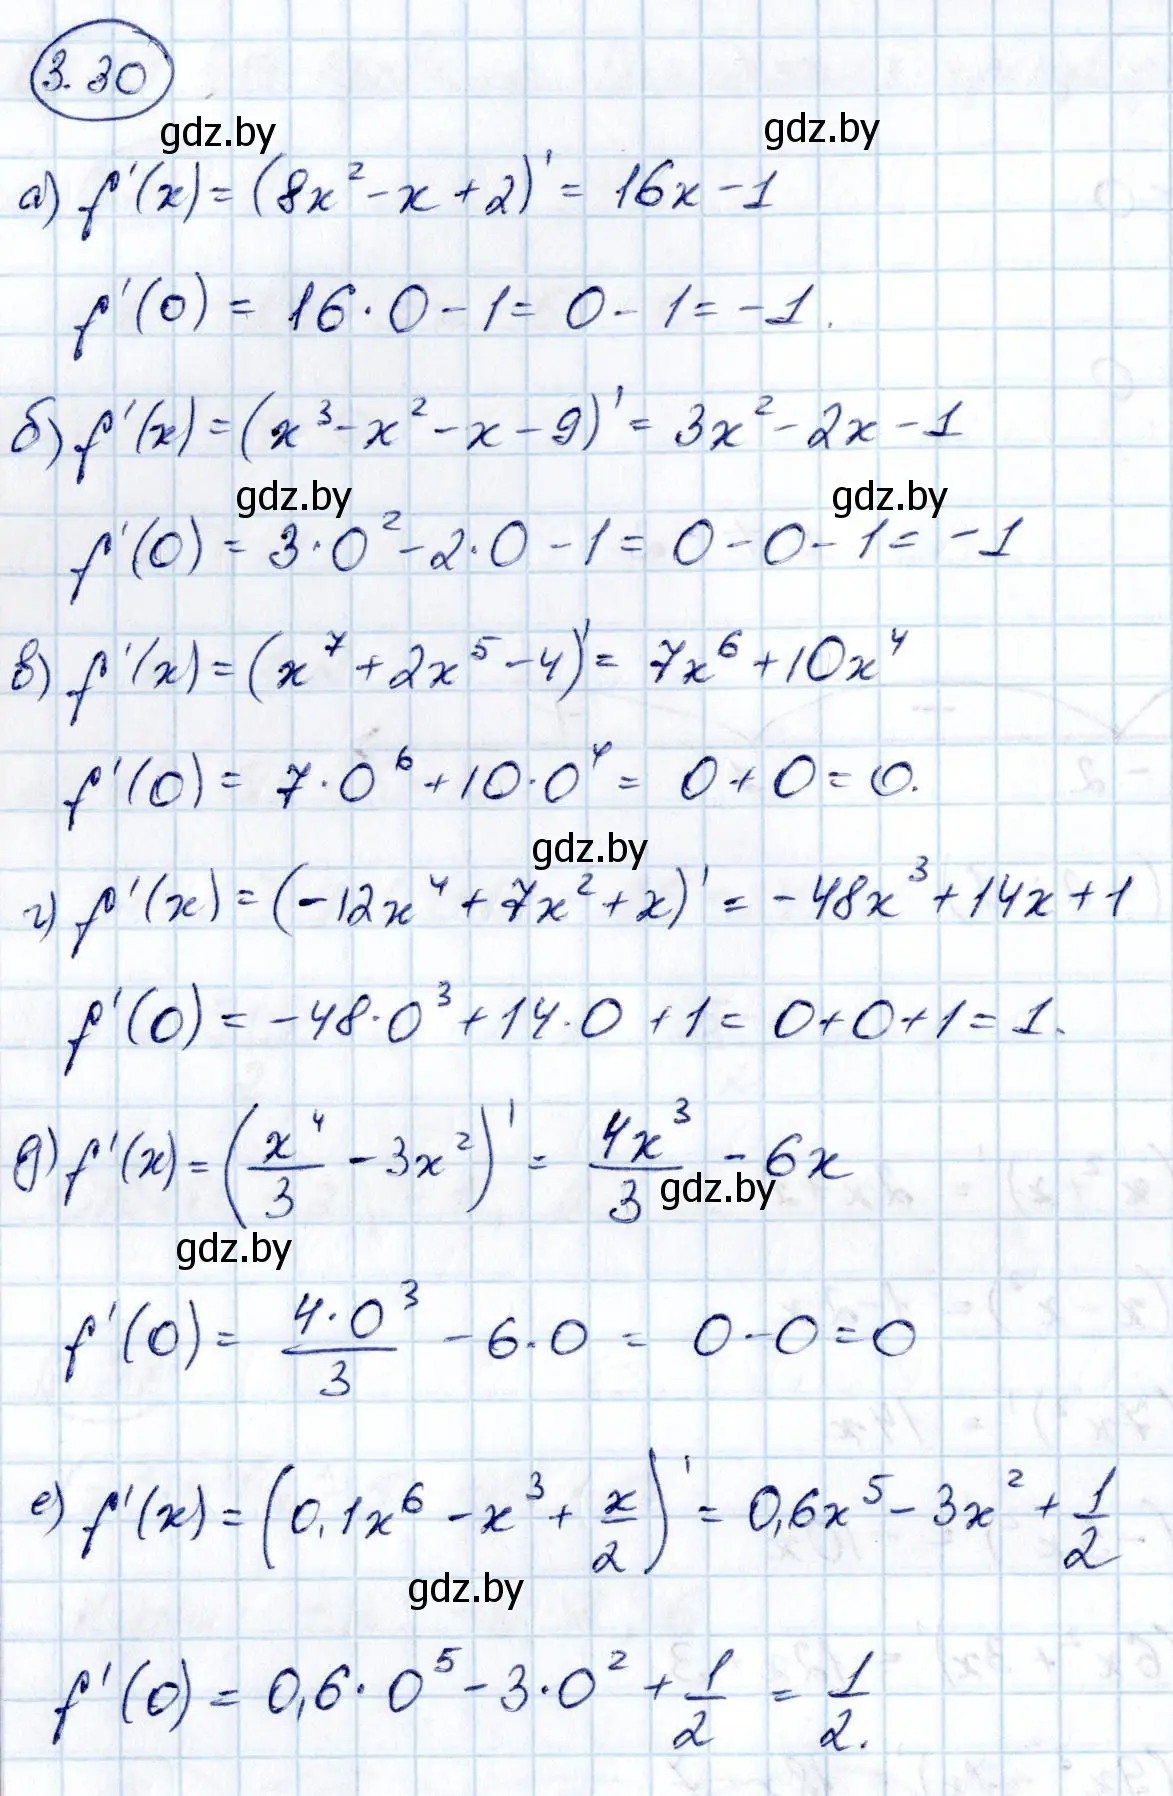 3.30
gdz.by gdz.by
а) f'(x) = (8x² - x + 2)' = 16x - 1
f'(0) = 16 · 0 - 1 = 0 - 1 = -1.
б) f'(x) = (x³ - x² - x - 9)' = 3x² - 2x - 1
gdz.by gdz.by
f'(0) = 3 · 0² - 2 · 0 - 1 = 0 - 0 - 1 = -1
в) f'(x) = (x⁷ + 2x⁵ - 4)' = 7x⁶ + 10x⁴
f'(0) = 7 · 0⁶ + 10 · 0⁴ = 0 + 0 = 0.
gdz.by
г) f'(x) = (-12x⁴ + 7x² + x)' = -48x³ + 14x + 1
f'(0) = -48 · 0³ + 14 · 0 + 1 = 0 + 0 + 1 = 1.
д) f'(x) = (x⁴/3 - 3x²)' = 4x³/3 - 6x
gdz.by
gdz.by
f'(0) = 4 · 0³/3 - 6 · 0 = 0 - 0 = 0
е) f'(x) = (0,1x⁶ - x³ + x/2)' = 0,6x⁵ - 3x² + 1/2
gdz.by
f'(0) = 0,6 · 0⁵ - 3 · 0² + 1/2 = 1/2.